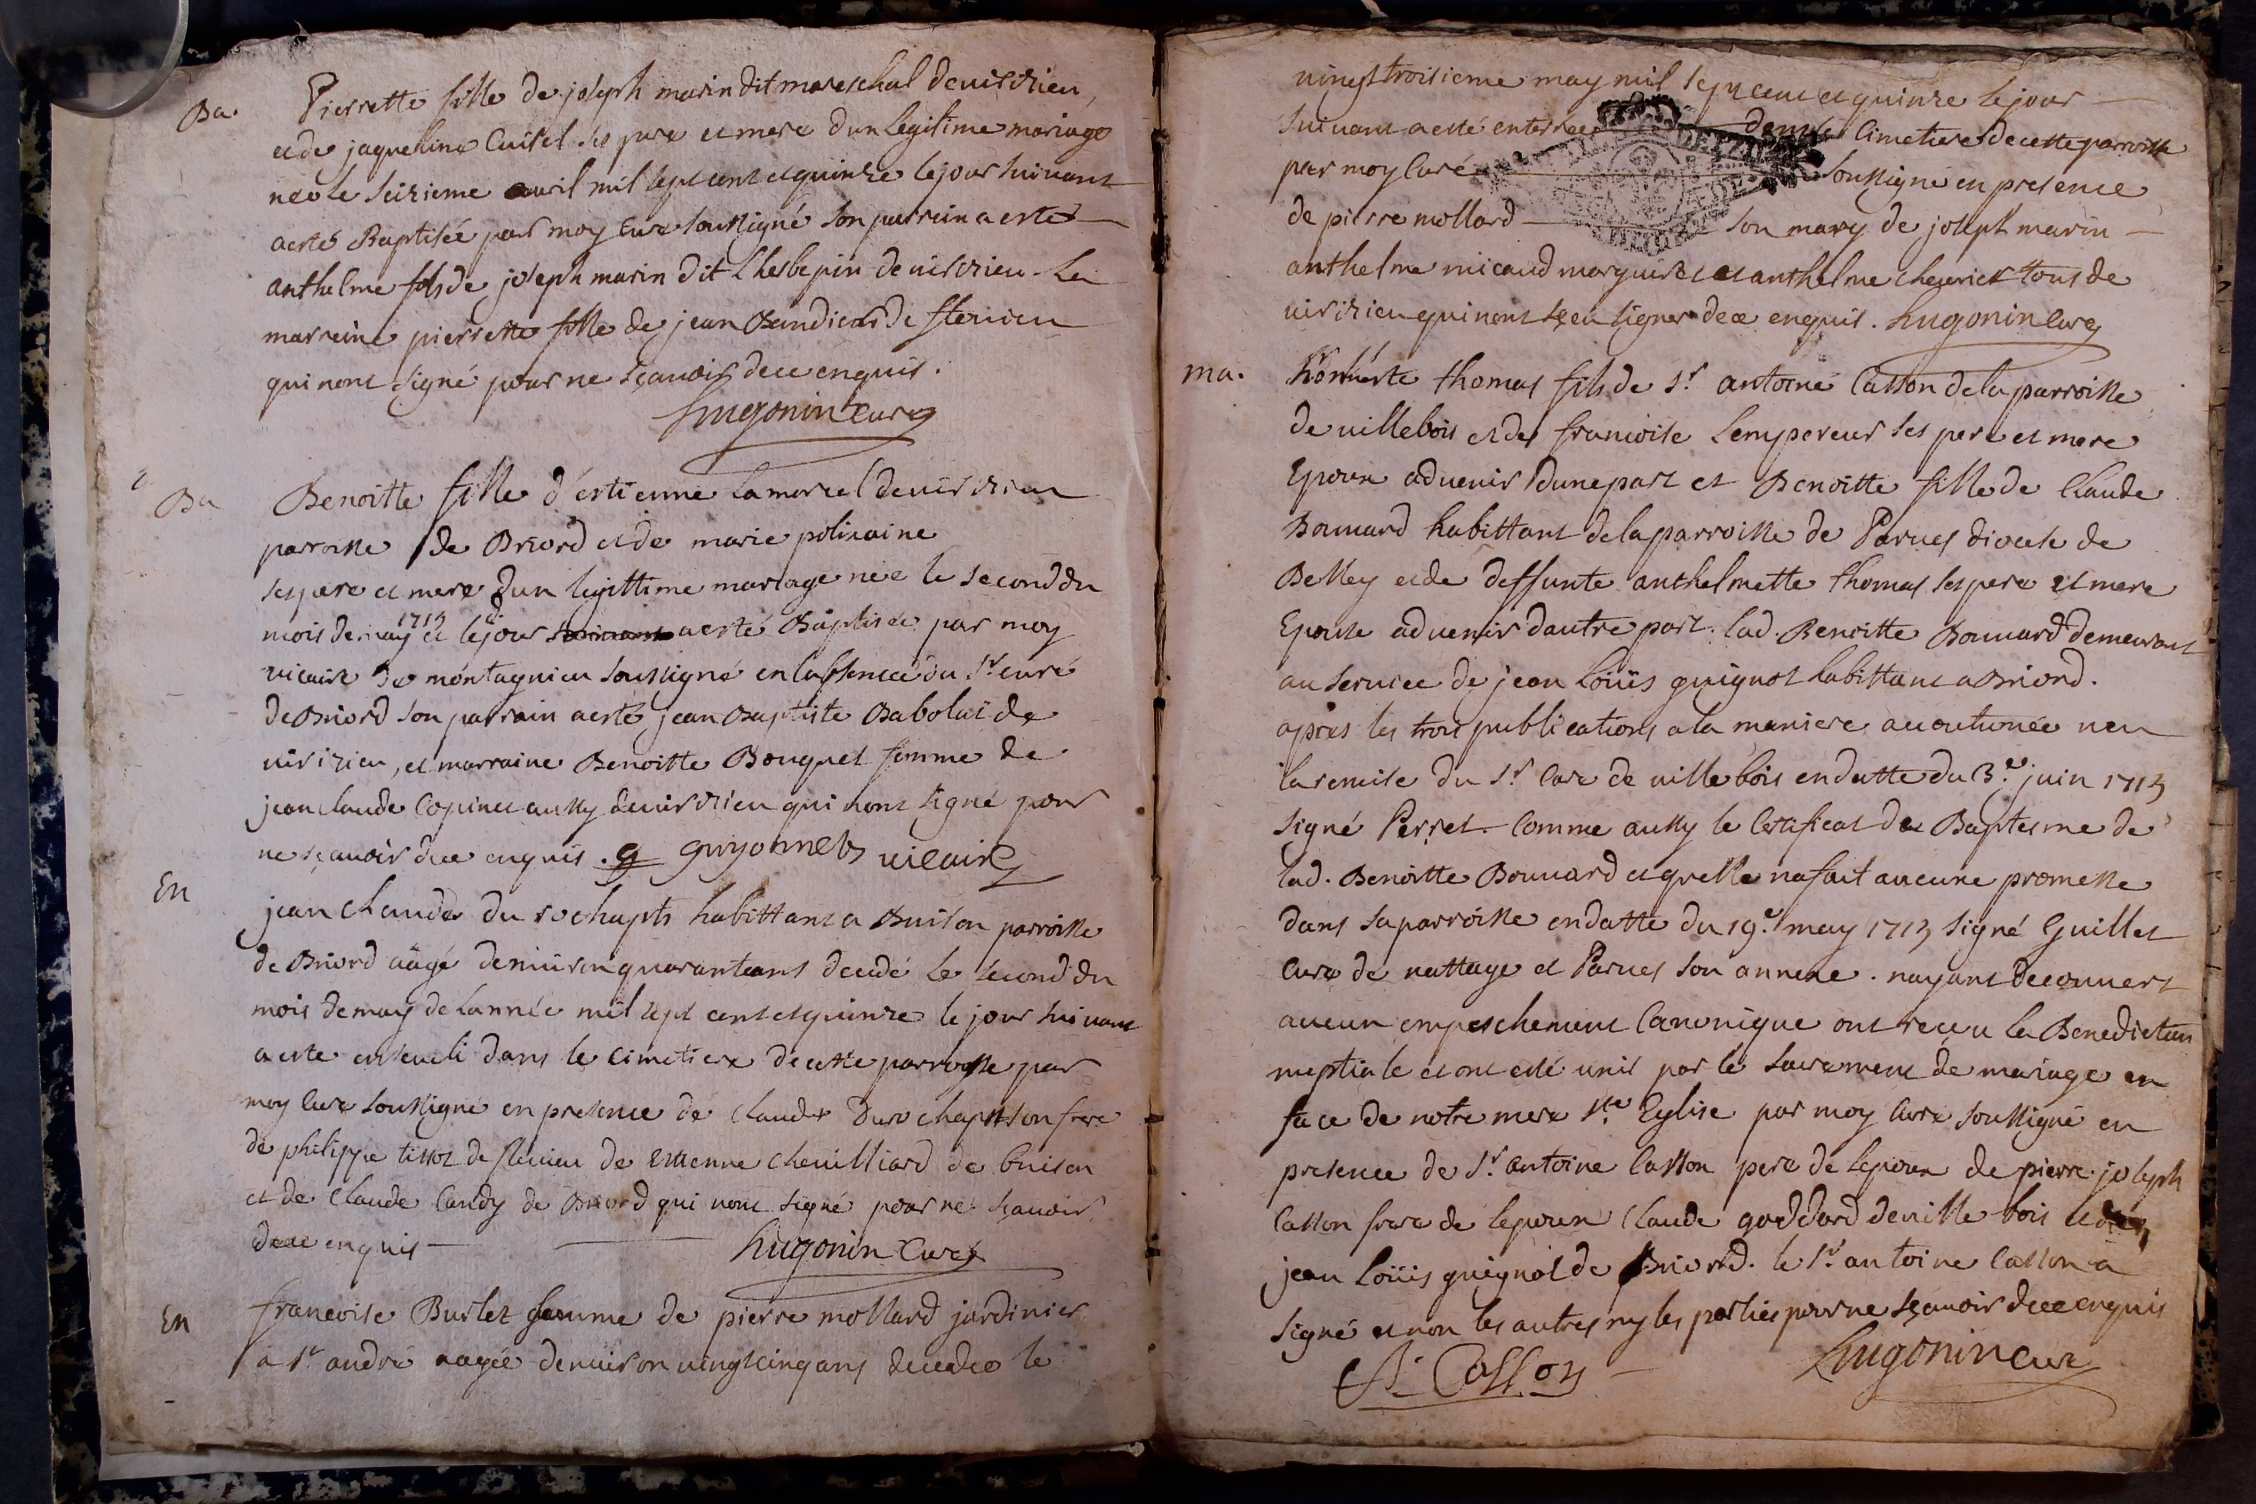 Ba. Pierrette fille de joseph marin dit mareschal de virizieu,
et de jaqueline Cuisel ses pere et mere d'un legitime mariage
nee le seizieme avril mil sept cent et quinze le jour suivant
a esté Baptisée par moy Curé soussigné son parrain a esté
anthelme fils de joseph marin dit Lhesbepin de virizieu. La
marraine pierrette fille de jean de
qui n'ont signé pour ne sçavoir de ce enquis.
hugonin Curé
Ba Benoitte fille d'estienne Lamorcel de virizieu
parroisse de Briord et de marie polinaine
ses pere et mere d'un legittime mariage née le second du
mois de may 1715 et led jour suivant a esté Baptisée par moy
vicaire de montagnieu soussigné en l'absence du Sr. curé
de Briord son parrain a esté jean Baptiste Babolat de
virizieu, et marraine Benoitte Bouquet femme de
jean claude Copinet aussy de virizieu qui n'ont signé pour
ne sçavoir de ce enquis. g guyonnet vicaire
En jean claude du rochapts habittant a Buison parroisse
de Briord aâgé d'environ quarante ans decedé le second du
mois de may de l'année mil sept cent et quinze le jour suivant
a esté enseveli dans le cimetiere de cette parroisse par
moy Curé soussigné en presence de claude durochapts son frere
de philippe tissot de flevieu de ettienne chevilliard de buison
et de Claude Candy de Briord qui n'ont signé pour ne sçavoir
de ce enquis hugonin Curé
En francoise Burlet famme de pierre mollard jardinier
a St. andré aagée d'environ vingt cinq ans decedee le
vingt troisieme may mil sept cent et quinze le jour
suivant a esté enterree dans le Cimetiere de cette parroisse
par moy Curé soussigné en presence
de pierre mollard son mary de joseph marin
anthelme micaud et anthelme chevrier tous de
virizieu qui n'ont sçeu signer de ce enquis. hugonin Curé
ma. honneste thomas fils de Sr. antoine Casson de la parroisse
de villebois et de francoise Lempereur ses pere et mere
Epoux advenir d'une part et Benoitte fille de Claude
Bonnard habittant de la parroisse de Parves diocese de
Belley et de deffunte anthelmette thomas ses pere et mere
Epouse advenir d'autre part. lad. Benoitte Bonnard demeurant
au service de jean Loüis guignot habittant a Briord.
apres les trois publications a la maniere accoutumée veu
la remise du Sr. Curé de villebois en datte du 3.e juin 1715
signé Perret comme aussy le Certificat de Baptesme de
lad. Benoitte Bonnard et quelle n'a fait aucune promesse
dans sa parroisse en datte du 19.e may 1715 signé Guillet
Curé de nattage et Parves son annexe. n'ayant decouvert
aucun empeschement Canonique ont reçeu la Benediction
nuptiale et ont esté unis par le sacrement de mariage en
face de notre mere Ste Eglise par moy Curé soussigné en
presence de Sr. antoine Casson pere de lepoux de pierre joseph
Casson frere de lepoux Claude goddard de ville bois et de
jean Loüis guignot de Briord. le Sr. antoine Casson a
signé et non les autres ny les parties pour ne sçavoir de ce enquis
A. Casson hugonin Curé